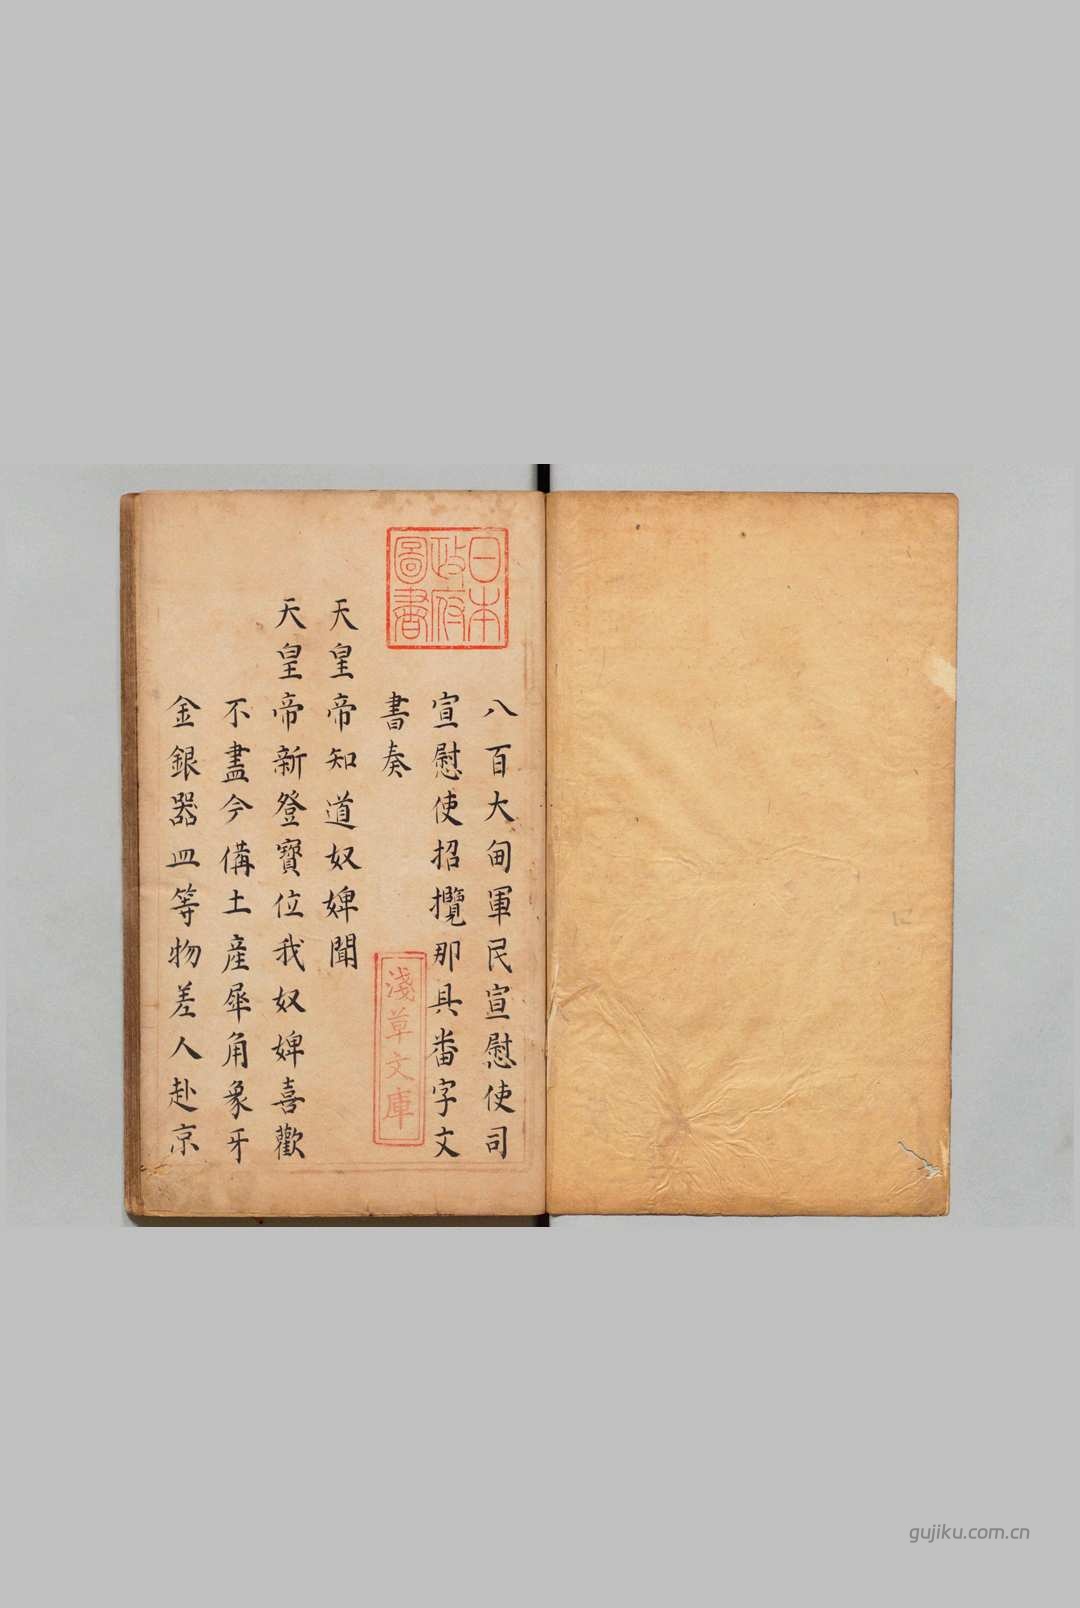 八百大甸軍民宣慰使司
宣慰使招攬那具畨字文
書奏
天皇帝知道奴婢聞
天皇帝新登寳位我奴婢喜歡
不盡今俻土産犀角象牙
金銀器皿等物差人赴京
日本
政府
圖書
淺草文庫
gujiku.com.cn